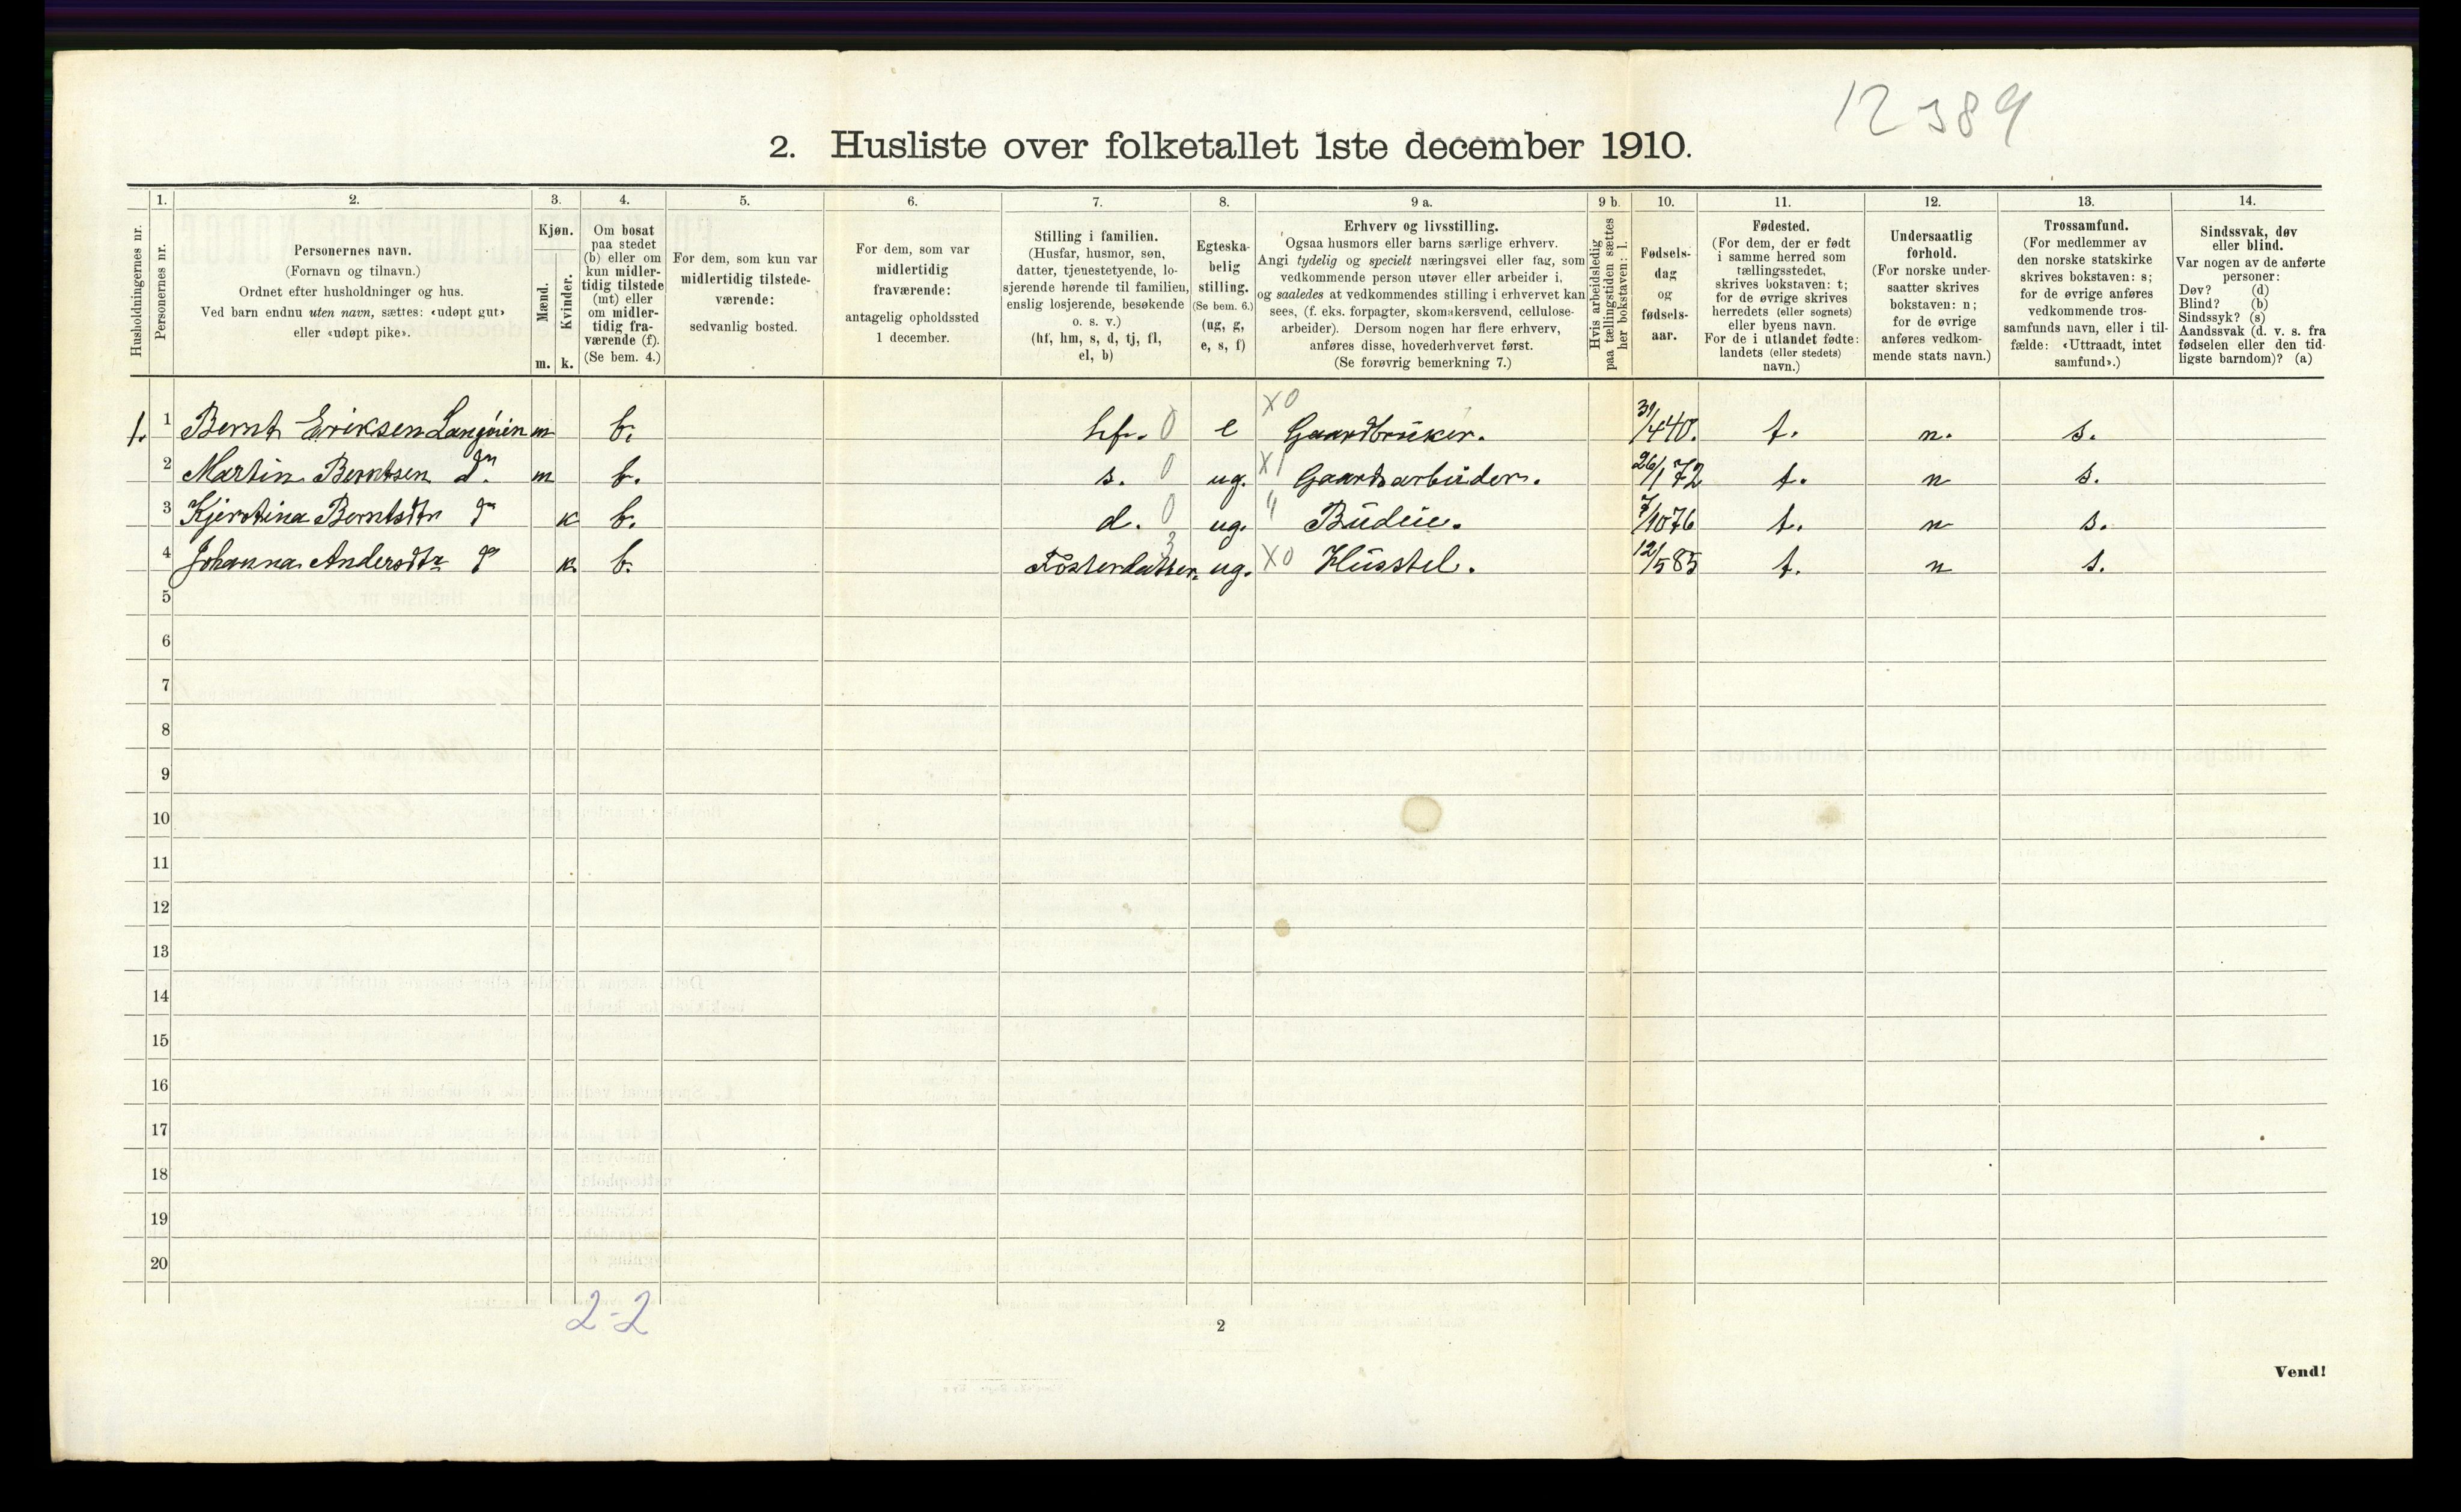 12389
2. Husliste over folketallet 1ste december 1910.
Husholdningernes nr.
1.
Personernes nr.
2.
Personernes navn.
(Fornavn og tilnavn.)
Ordnet efter husholdninger og hus.
Ved barn endnu uten navn, sættes: «udøpt gut»
eller «udøpt pike».
3.
Kjøn.
Mænd.
Kvinder.
m. k.
4.
Om bosat
paa stedet
(b) eller om
kun midler-
tidig tilstede
(mt) eller
om midler-
tidig fra-
værende (f).
(Se bem. 4.)
5.
For dem, som kun var
midlertidig tilstede-
værende:
sedvanlig bosted.
6.
For dem, som var
midlertidig
fraværende:
antagelig opholdssted
1 december.
7.
Stilling i familien.
(Husfar, husmor, søn,
datter, tjenestetyende, lo-
sjerende hørende til familien,
enslig losjerende, besøkende
o. s. v.)
(hf, hm, s, d, tj, fl,
el, b)
8.
Egteska-
belig
stilling.
(Se bem. 6.)
(ug, g,
e, s, f)
9 a.
Erhverv og livsstilling.
Ogsaa husmors eller barns særlige erhverv.
Angi tydelig og specielt næringsvei eller fag, som
vedkommende person utøver eller arbeider i,
og saaledes at vedkommendes stilling i erhvervet kan
sees, (f. eks. forpagter, skomakersvend, cellulose-
arbeider). Dersom nogen har flere erhverv,
anføres disse, hovederhvervet først.
(Se forøvrig bemerkning 7.)
9 b.
Hvis arbeidsledig
paa tællingstiden sættes
her bokstaven: l.
10.
Fødsels-
dag
og
fødsels-
aar.
11.
Fødested.
(For dem, der er født
i samme herred som
tællingsstedet,
skrives bokstaven: t;
for de øvrige skrives
herredets (eller sognets)
eller byens navn.
For de i utlandet fødte:
landets (eller stedets)
navn.)
12.
Undersaatlig
forhold.
(For norske under-
saatter skrives
bokstaven: n;
for de øvrige
anføres vedkom-
mende stats navn.)
13.
Trossamfund.
(For medlemmer av
den norske statskirke
skrives bokstaven: s;
for de øvrige anføres
vedkommende tros-
samfunds navn, eller i til-
fælde: «Uttraadt, intet
samfund».)
14.
Sindssvak, døv
eller blind.
Var nogen av de anførte
personer:
Døv? (d)
Blind? (b)
Sindssyk? (s)
Aandssvak (d. v. s. fra
fødselen eller den tid-
ligste barndom)? (a)
1. 1 Bernt Eriksen Langöien m b. hf. 0 e X0 Gaardbruker. 31/4 40. t. n. s.
2 Martin Berntsen do. m b. s. 0 ug. X1 Gaardsarbeider. 26/1 72 t. n s.
3 Kjerstina Berntsdtr do k b. d. 0 ug. " Budeie. 7/10 76 t. n s.
4 Johanna Andersdtr do k. b. Fosterdatter. 3 ug. X0 Husstel. 12/5 85 t. n s.
5
6
7
8
9
10
11
12
13
14
15
16
17
18
19
20
2-2
2
Vend!